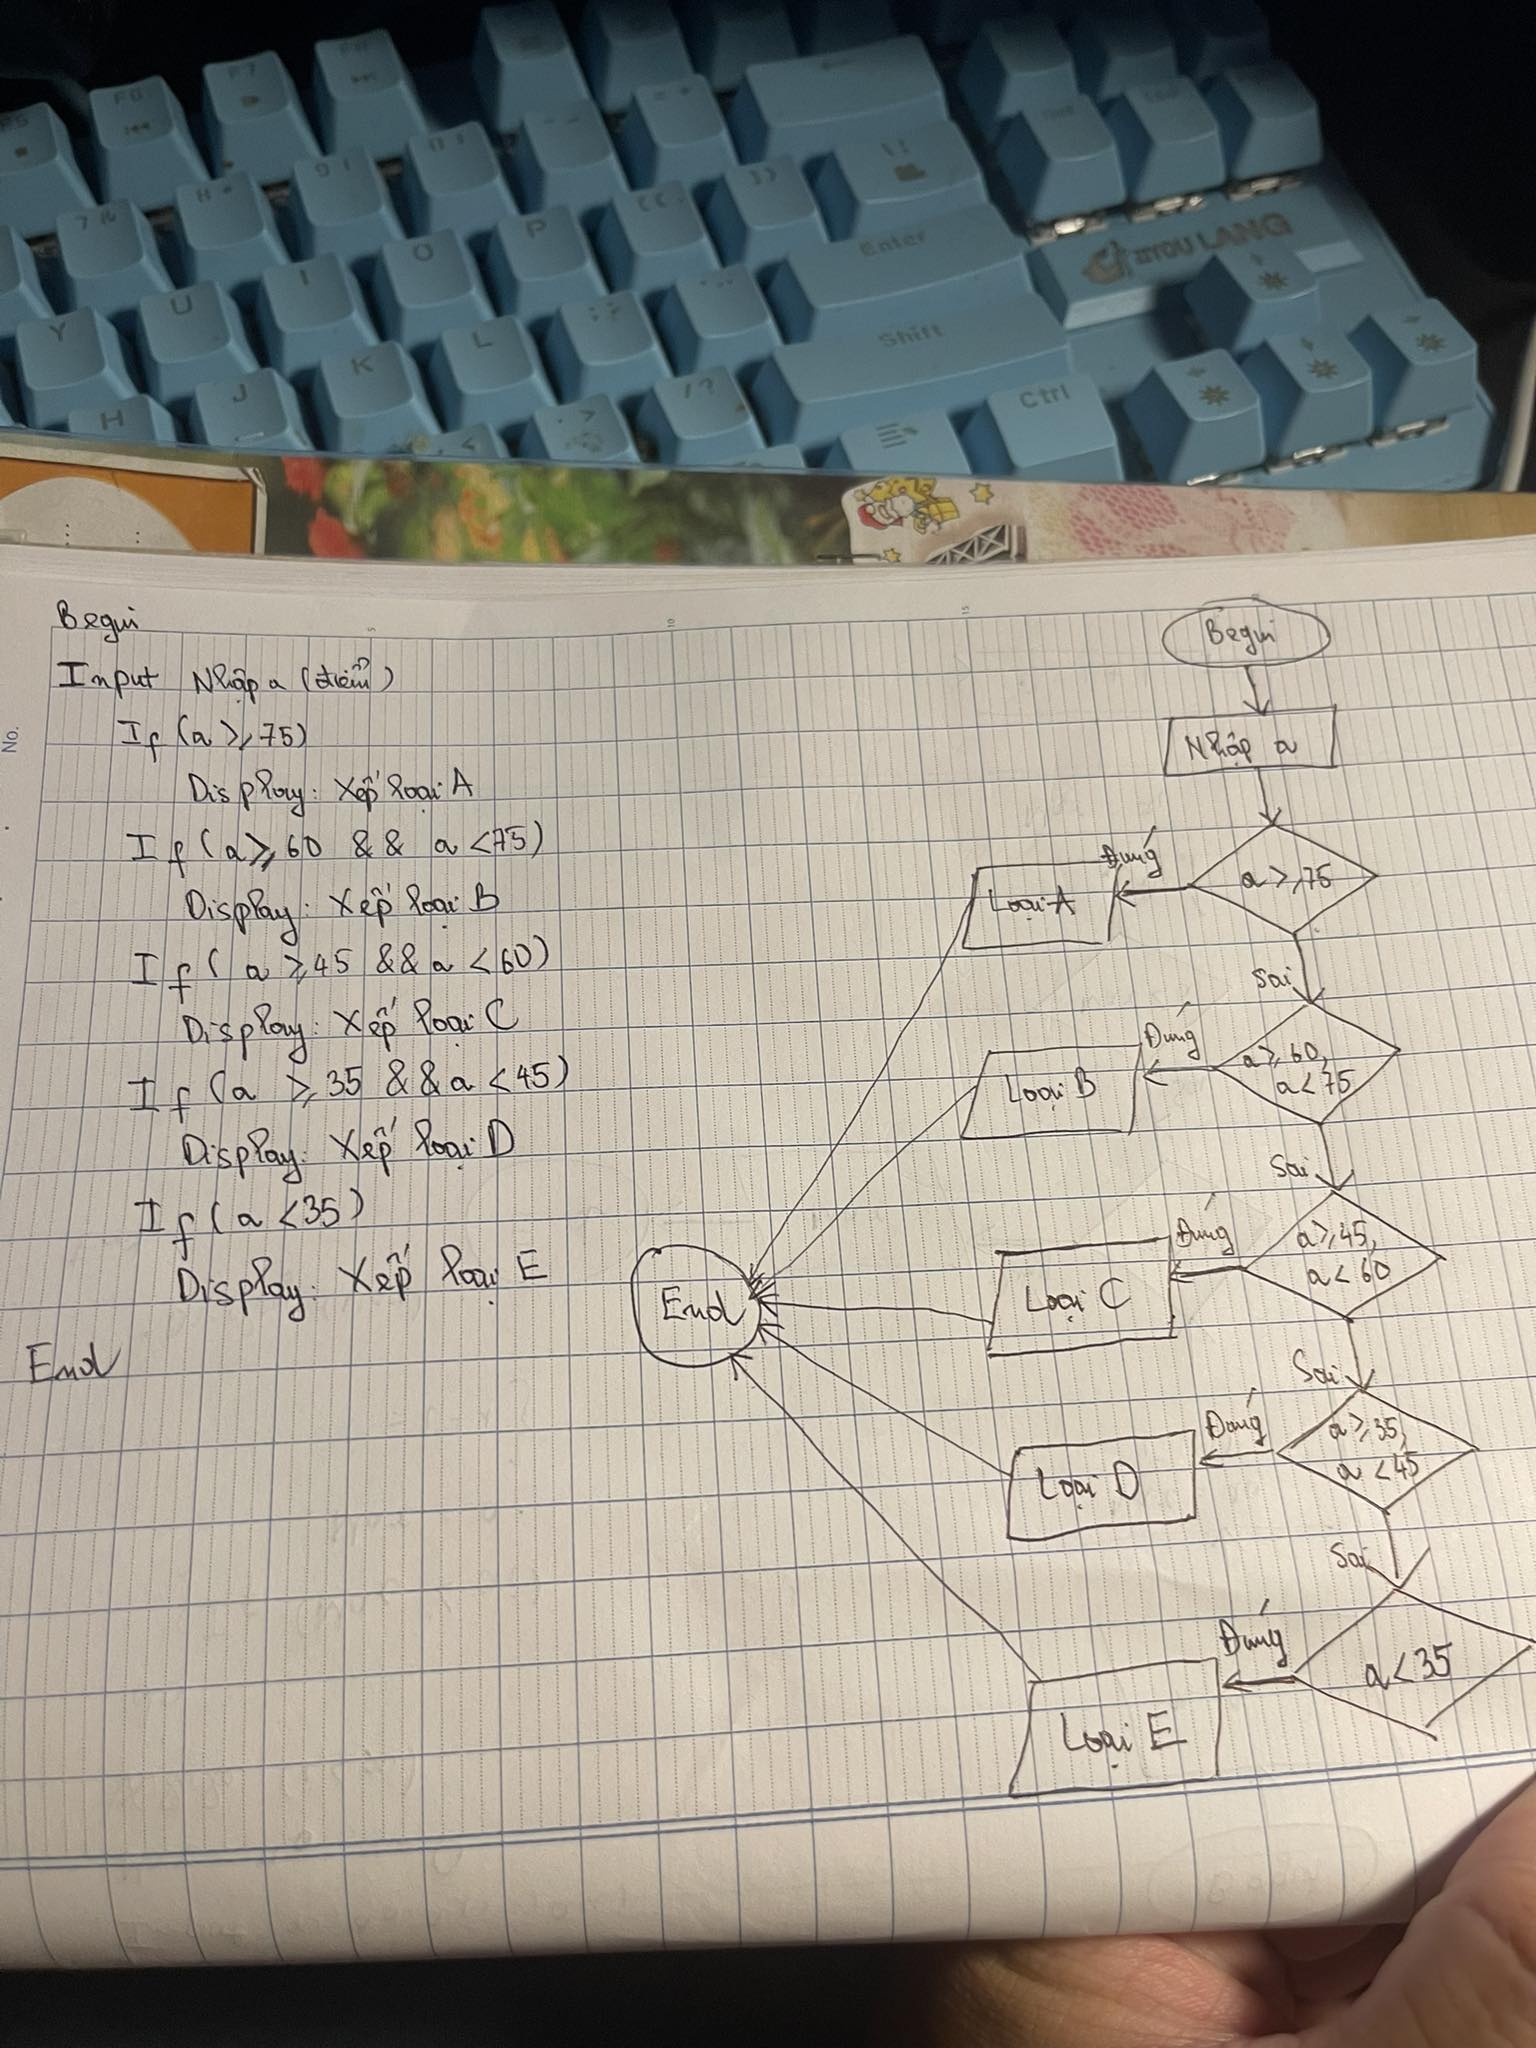 F5
F6
F7
F8
7 &
8 *
9 (
0 )
- _
= +
Y
U
I
O
P
[ {
] }
Enter
H
J
K
L
; :
Shift
/ ?
Ctrl
ZIYOU LANG
No.
5
10
15
Begin
Input Nhập a (điểm)
If (a ≥ 75)
Display: Xếp loại A
If (a ≥ 60 && a < 75)
Display: Xếp loại B
If (a ≥ 45 && a < 60)
Display: Xếp loại C
If (a ≥ 35 && a < 45)
Display: Xếp loại D
If (a < 35)
Display: Xếp loại E
End
Begin
Nhập a
a ≥ 75
Đúng
Loại A
Sai
a ≥ 60,
a < 75
Đúng
Loại B
Sai
a ≥ 45,
a < 60
Đúng
Loại C
End
Sai
a ≥ 35,
a < 45
Đúng
Loại D
Sai
a < 35
Đúng
Loại E